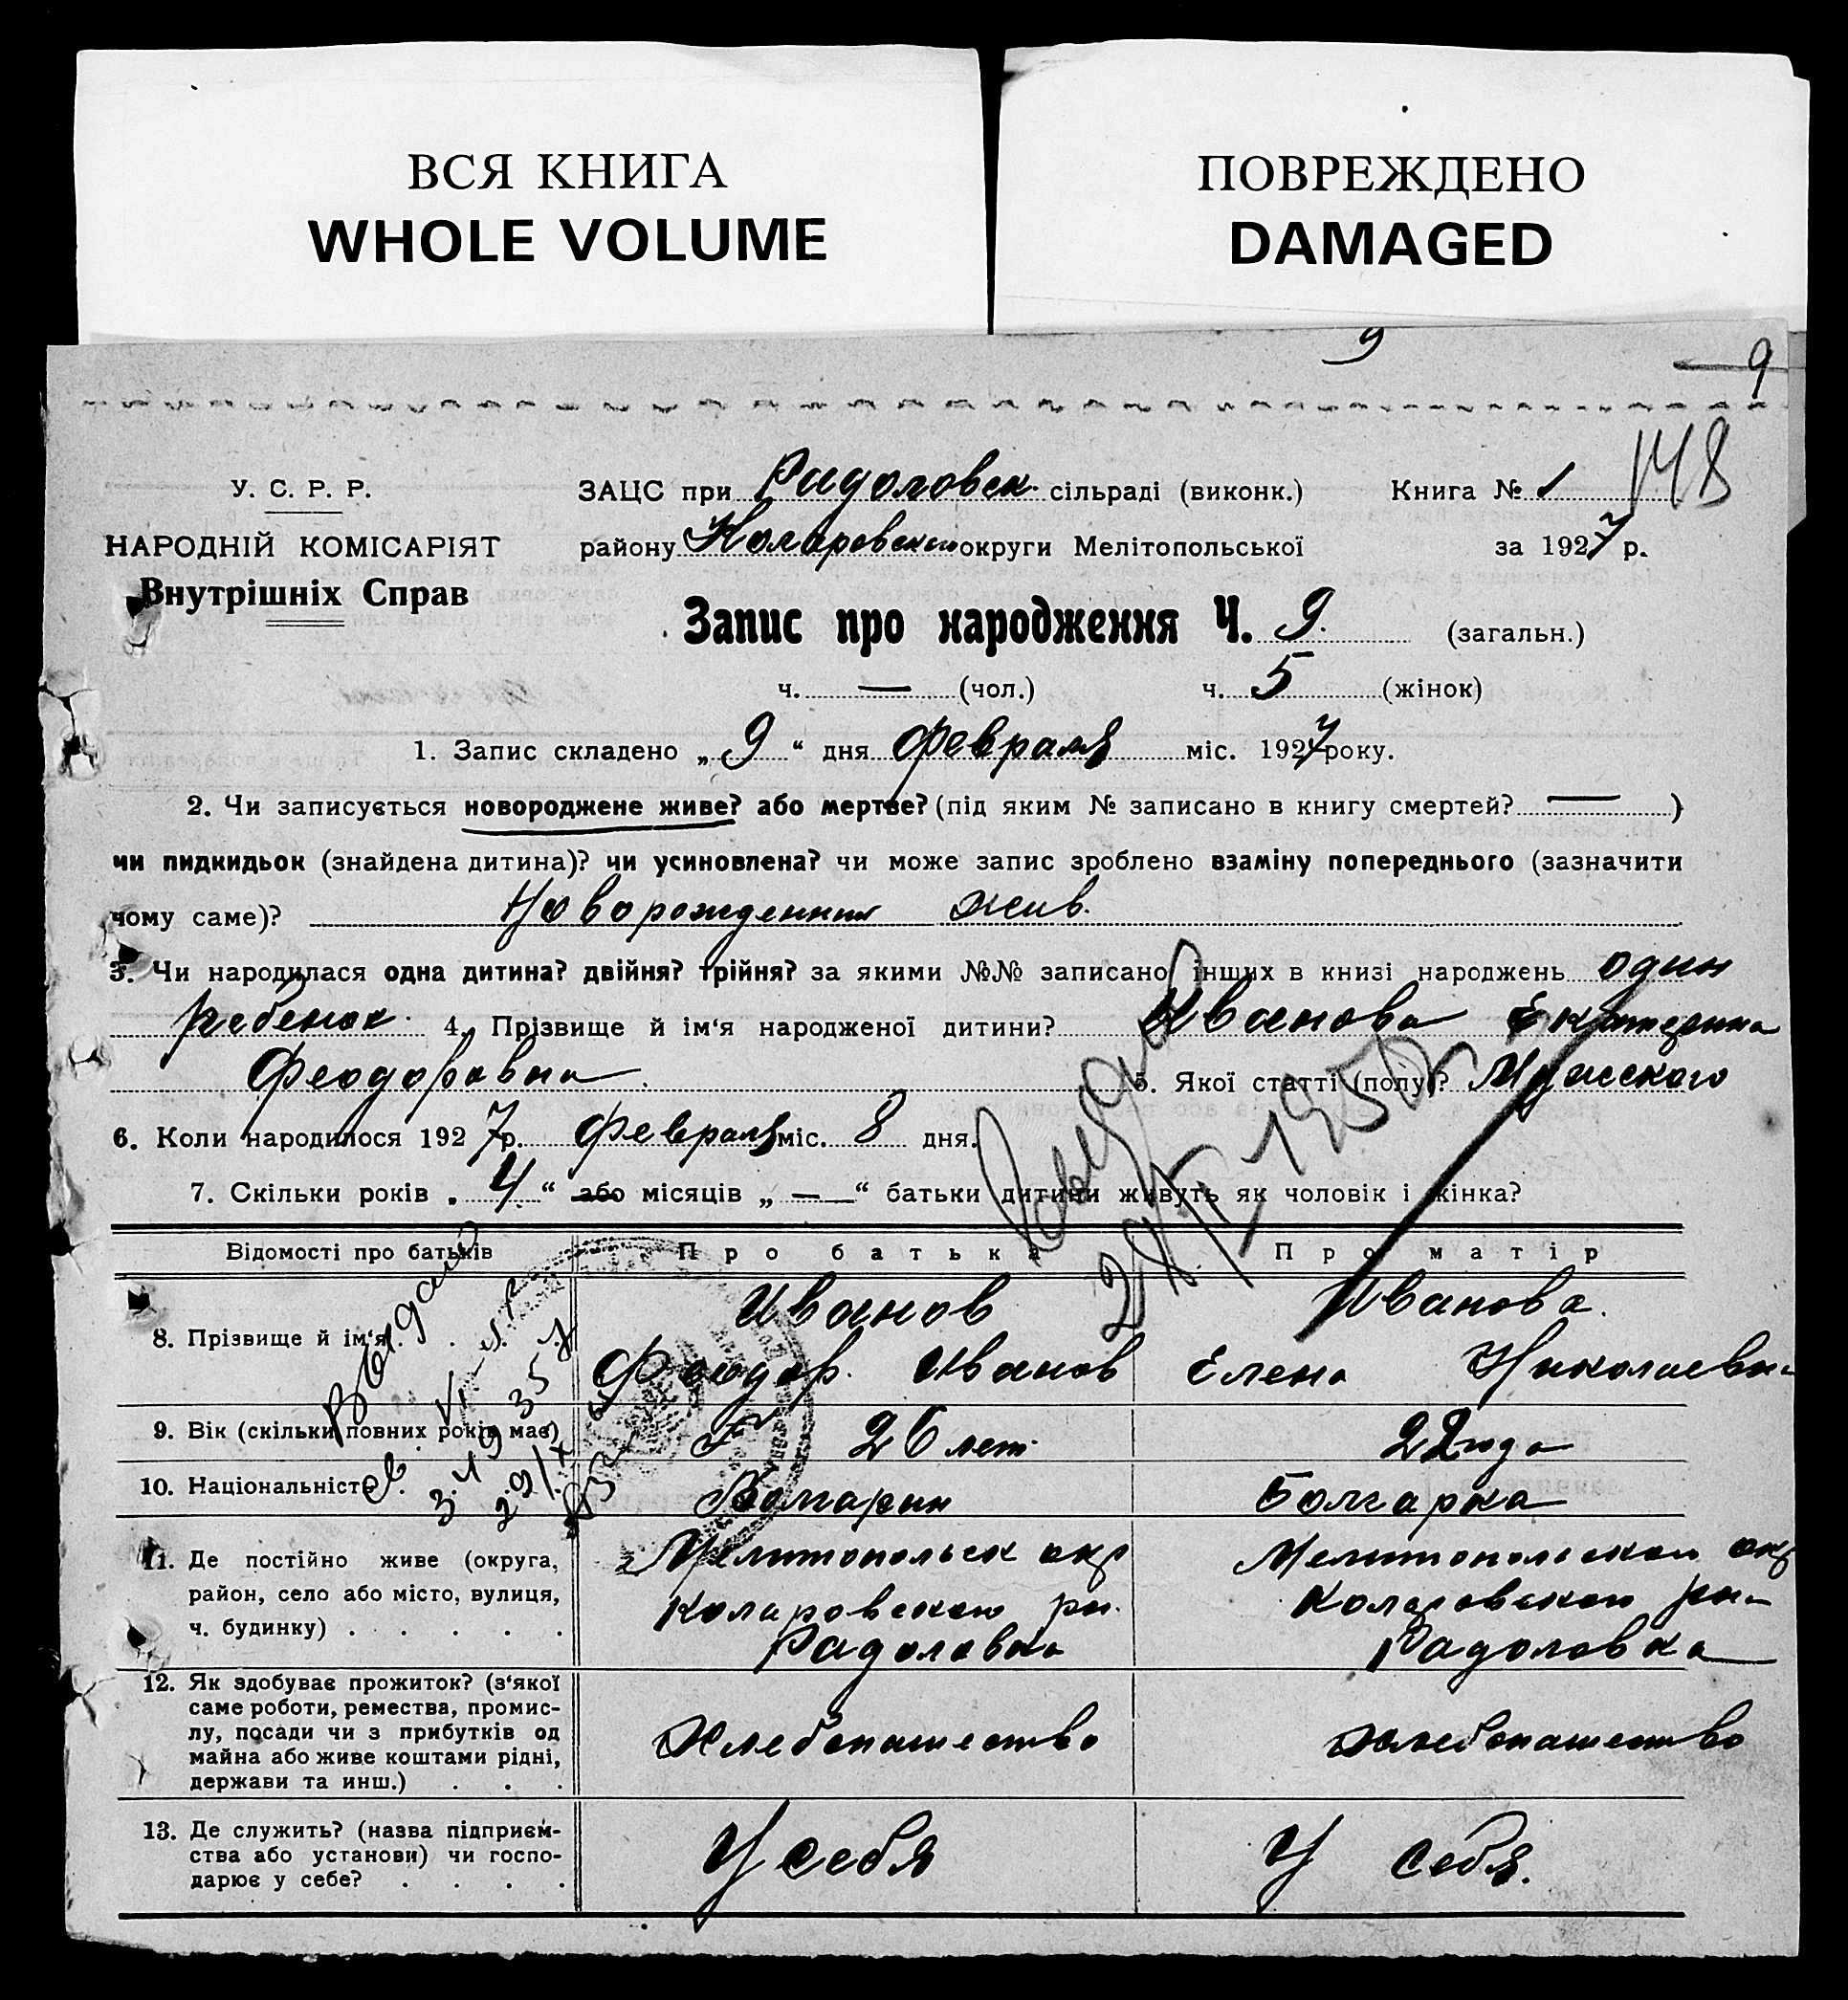 ВСЯ КНИГА
WHOLE VOLUME
ПОВРЕЖДЕНО
DAMAGED
9
9
148
У. С. Р. Р.
НАРОДНІЙ КОМІСАРІЯТ
Внутрішніх Справ
ЗАЦС при Радоловск. сільраді (виконк.) Книга № 1
району Коларовского округи Мелітопольської за 1927 р.
Запис про народження Ч. 9. (загальн.)
ч. — (чол.) ч. 5 (жінок)
1. Запис складено „ 9 “ дня Февраля міс. 1927 року.
2. Чи записується новороджене живе? або мертве? (під яким № записано в книгу смертей? — )
чи пидкидьок (знайдена дитина)? чи усиновлена? чи може запис зроблено взаміну попереднього (зазначити
чому саме)? Новорожденная жив.
3. Чи народилася одна дитина? двійня? трійня? за якими №№ записано інших в книзі народжень один
ребенок. 4. Прізвище й ім'я народженої дитини? Иванова Екатерина
Феодоровна 5. Якої статті (полу)? Мужеского
6. Коли народилося 1927 р. Февраля міс. 8 дня.
7. Скільки років „ 4 “ або місяців „ — “ батьки дитини живуть як чоловік і жінка?
Відомості про батьків Про батька Про матір
8. Прізвище й ім'я Иванов Иванова.
Феодор. Иванов Елена Николаевн
9. Вік (скільки повних років має) 26 лет. 22 года
10. Національність Болгарин Болгарка
11. Де постійно живе (округа, Мелитопольск окр Мелитопольской окр
район, село або місто, вулиця, Коларовского рн. Коларовского рн
ч. будинку) . . . . . Радоловка Радоловка
12. Як здобуває прожиток? (з'якої
саме роботи, ремества, промис-
лу, посади чи з прибутків од Хлебопашество Хлебопашество
майна або живе коштами рідні,
держави та инш.) . . .
13. Де служить? (назва підприєм-
ства або установи) чи госпо- У себя У себя.
дарює у себе? . . . .
Выдано